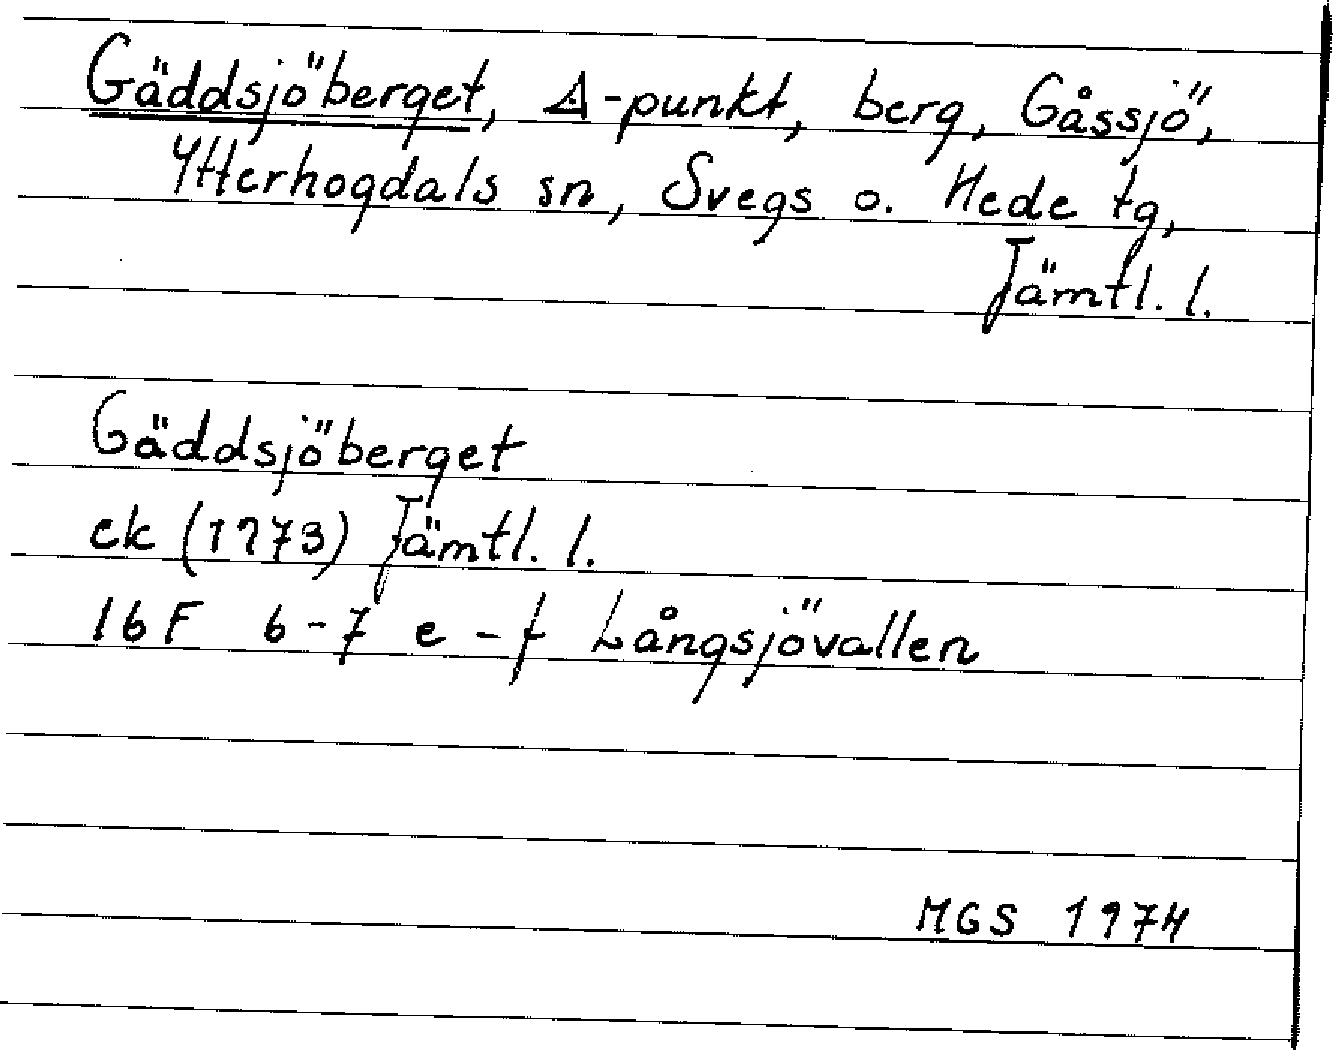 Gäddsjöberget, ◬-punkt, berg, Gåssjö,
Ytterhogdals sn, Svegs o. Hede tg,
Jämtl. l.
Gäddsjöberget
ek (1973) Jämtl. l.
16F 6-7 e-f Långsjövallen
MGS 1974